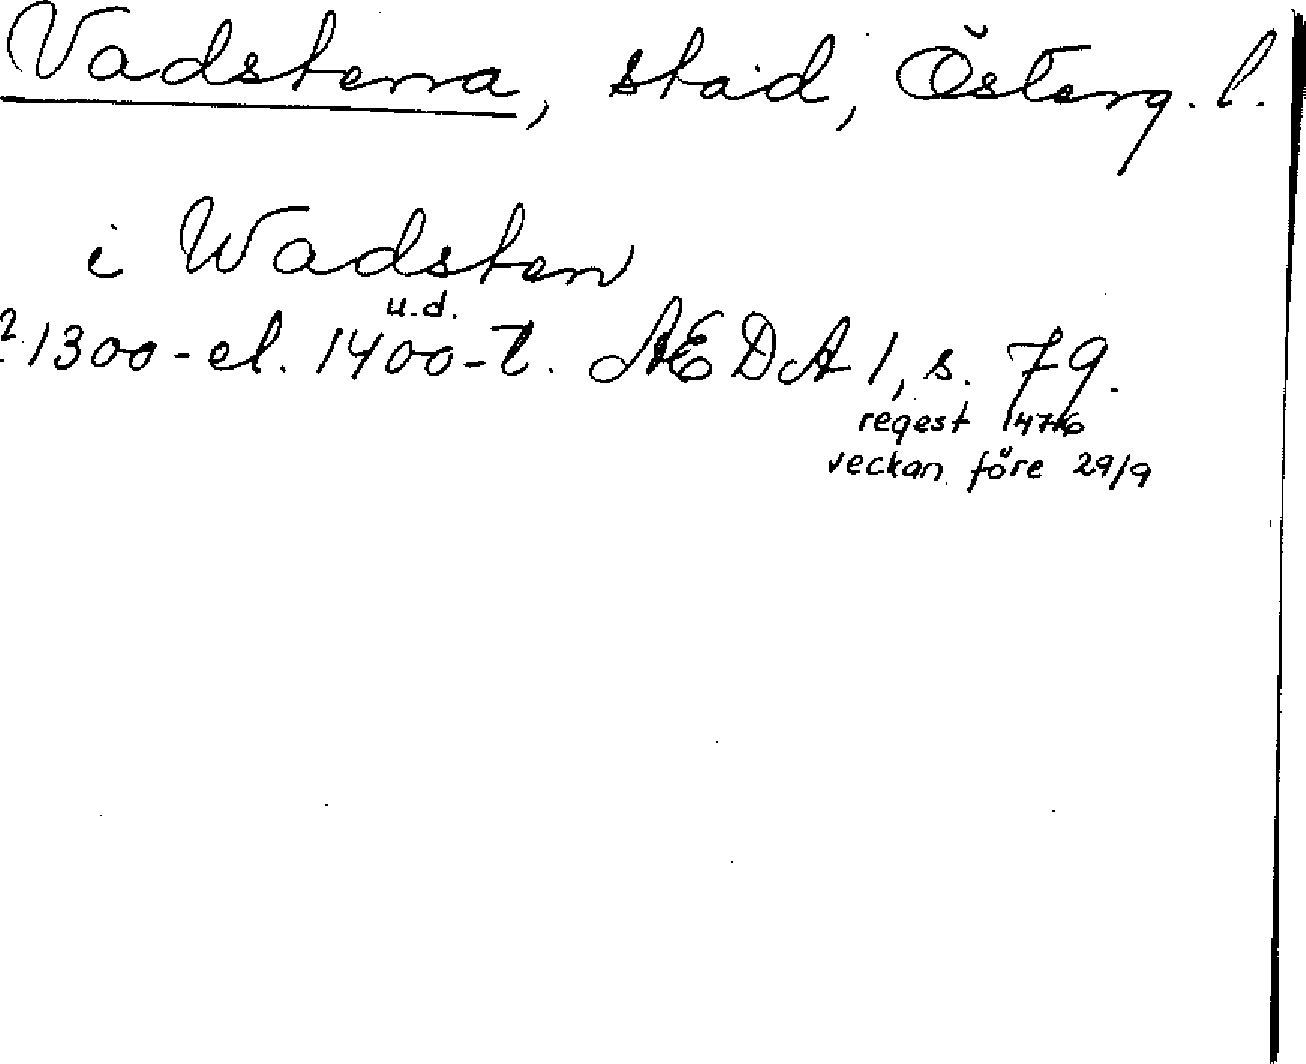 Vadstena, stad, Österg. l.
i Wadsten
u.d.
? 1300- el. 1400-t. ÆDA 1, s. 79.
regest 1476
veckan före 29/9